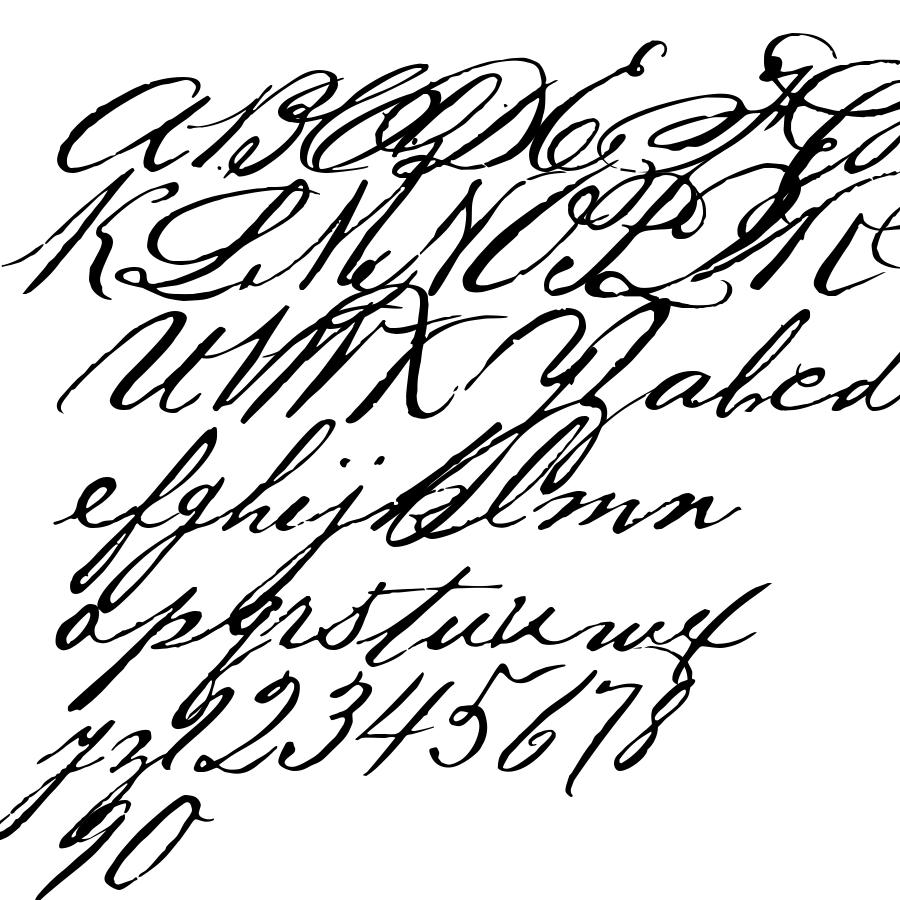 ABCDEFG
KLMNOPQR
UVWXYZabcd
efghijklmn
opqrstuvwx
yz12345678
90